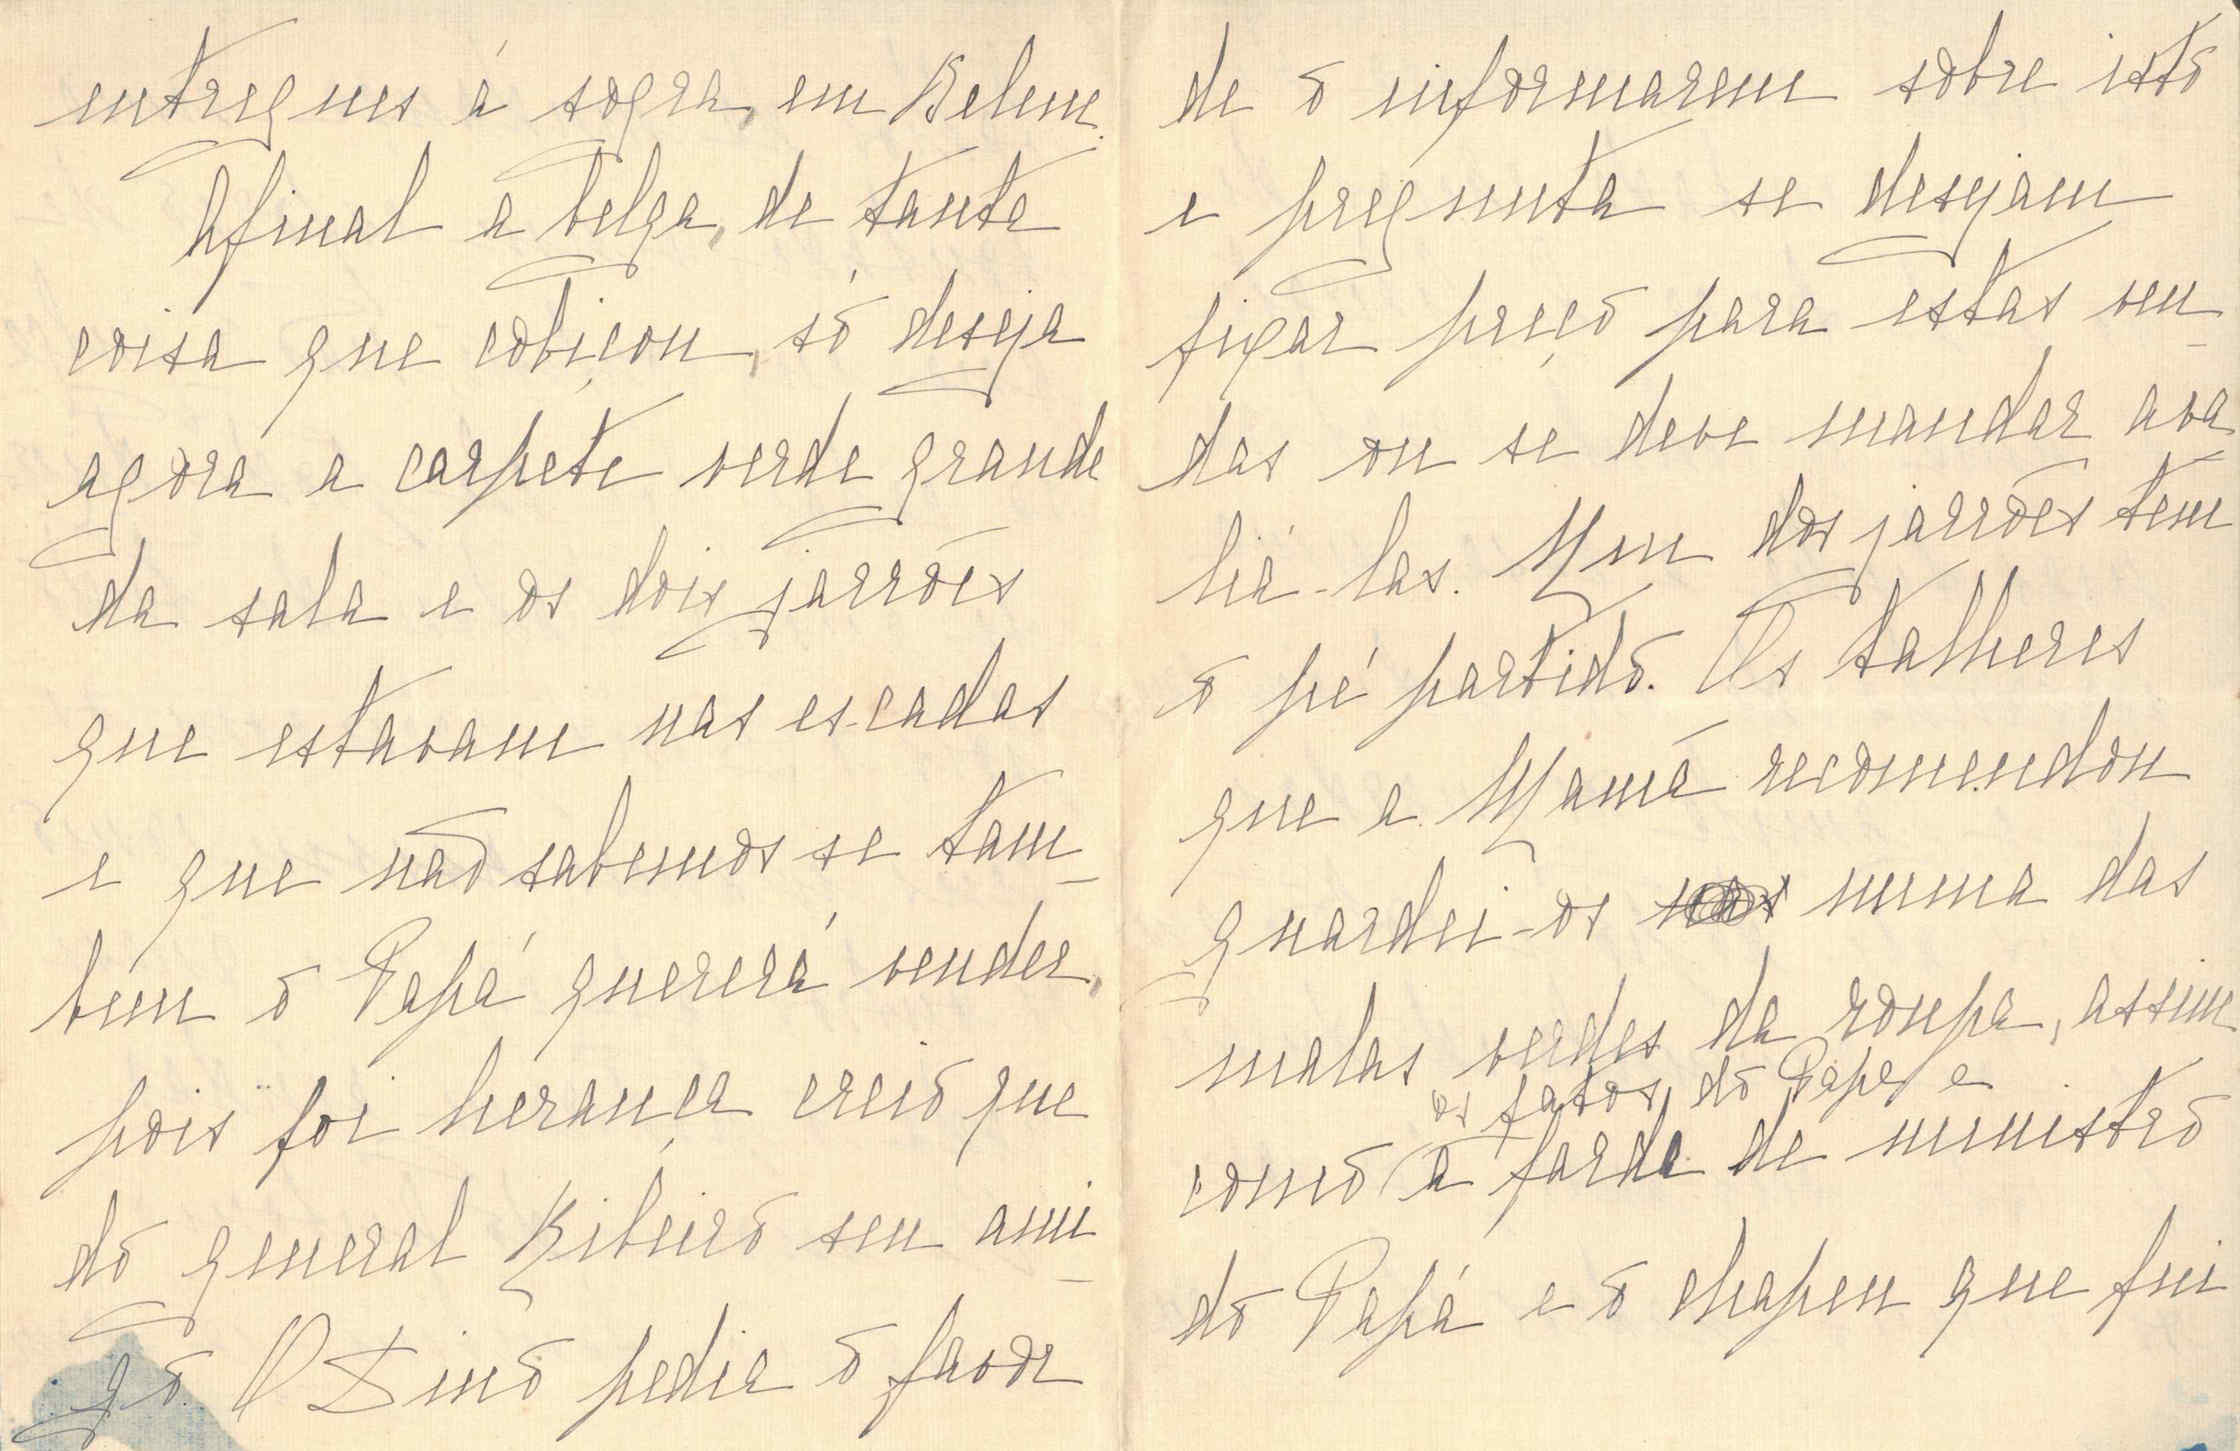 entregues á sogra, em Belem.
Afinal a belga, de tanta
coisa que cobiçou, só deseja
agora a carpete verde grande
da sala e os dois jarrões
que estavam nas escadas
e que não sabemos se tam-
bem o Papá quererá vender,
pois foi herança creio que
do general Ribeiro seu ami-
go. O Dino pedia o favor
de o informarem sobre isto
e pregunta se desejam
fixar preço para estas ven-
das ou se deve mandar ava
liá-las. Um dos jarrões tem
o pé partido. Os talheres
que a Mamã recomendou
guardei-os numa das
malas verdes da roupa, assim
os fatos do Papá e
como a farda de ministro
do Papá e o chapeu que fui